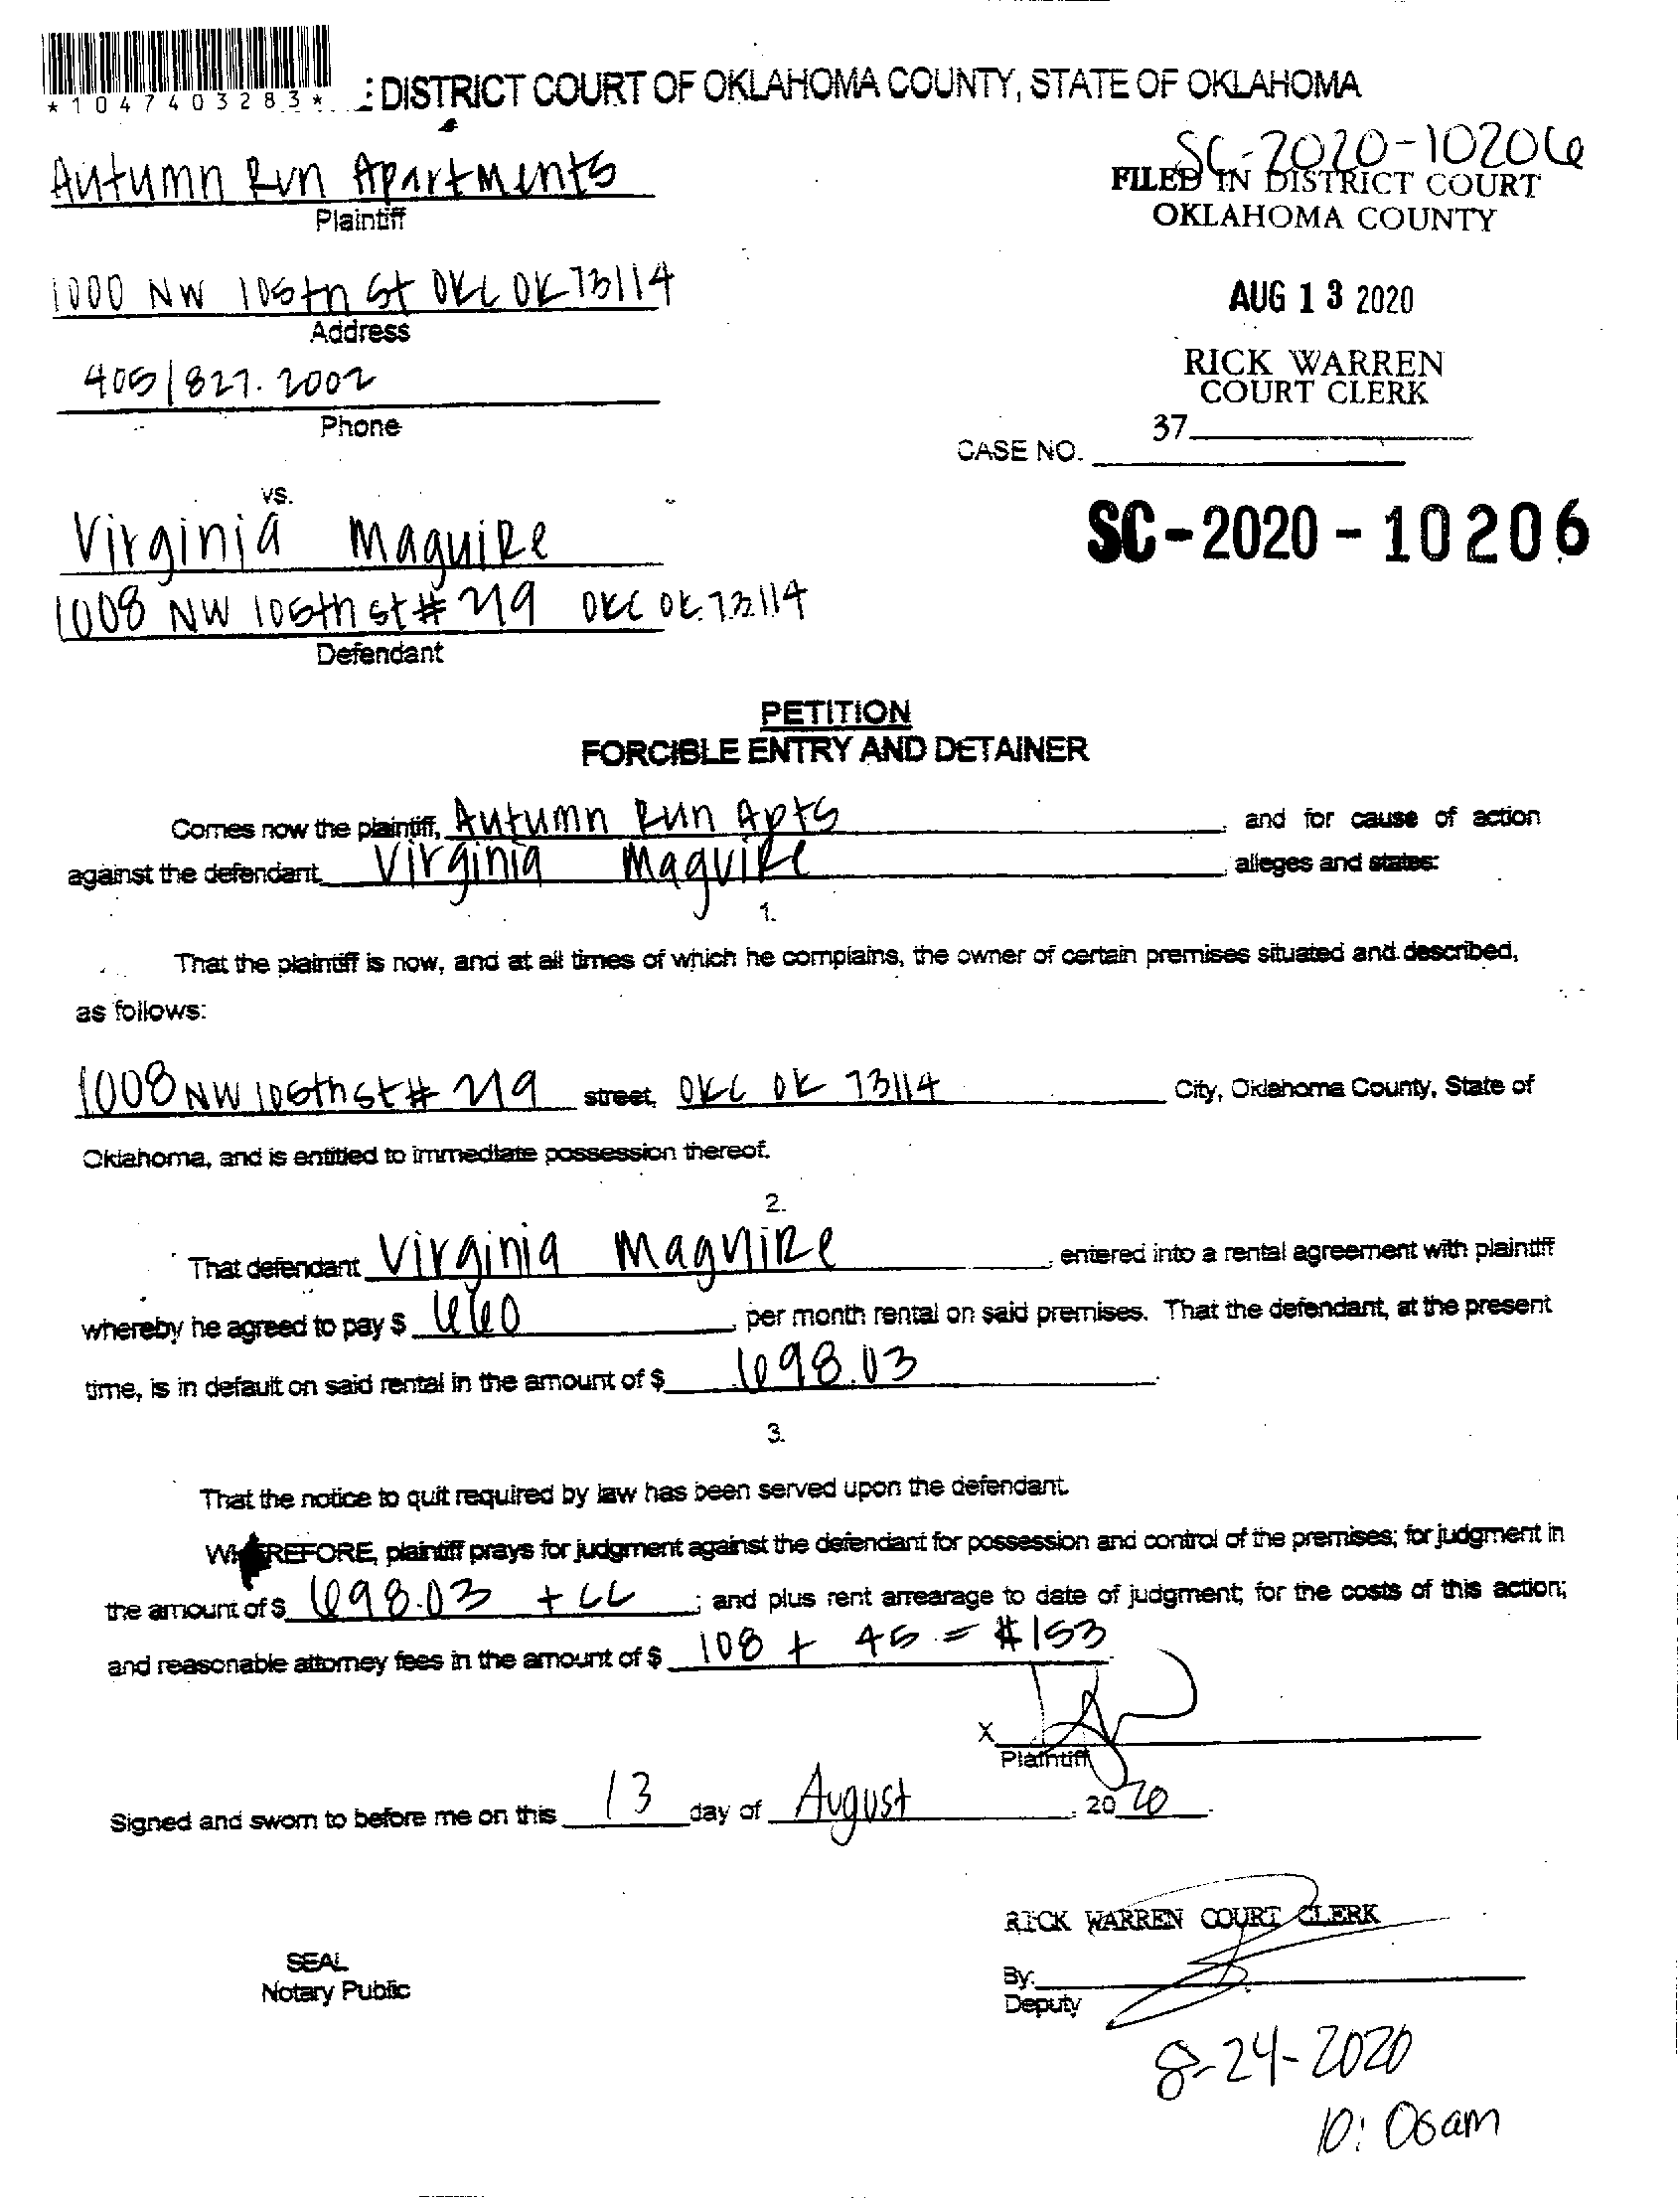 *1047403283*
: DISTRICT COURT OF OKLAHOMA COUNTY, STATE OF OKLAHOMA
SC-2020-10206
Autumn Run Apartments
Plaintiff
FILED IN DISTRICT COURT
OKLAHOMA COUNTY
1000 NW 105th St OKC OK 73114
Address
AUG 13 2020
RICK WARREN
COURT CLERK
405/827.2002
Phone
37
CASE NO.
vs.
Virginia Maguire
SC-2020-10206
1008 NW 106th st # 219 OKC OK 73114
Defendant
PETITION
FORCIBLE ENTRY AND DETAINER
Comes now the plaintiff, Autumn Run Apts, and for cause of action
against the defendant, Virginia Maguire, alleges and states:
1.
That the plaintiff is now, and at all times of which he complains, the owner of certain premises situated and described,
as follows:
1008 NW 106th st # 219 street, OKC OK 73114 City, Oklahoma County, State of
Oklahoma, and is entitled to immediate possession thereof.
2.
That defendant Virginia Maguire, entered into a rental agreement with plaintiff
whereby he agreed to pay $ 660, per month rental on said premises. That the defendant, at the present
time, is in default on said rental in the amount of $ 698.03.
3.
That the notice to quit required by law has been served upon the defendant.
WHEREFORE, plaintiff prays for judgment against the defendant for possession and control of the premises; for judgment in
the amount of $ 698.03 + CC; and plus rent arrearage to date of judgment; for the costs of this action;
and reasonable attorney fees in the amount of $ 108 + 45 = $153.
X
Plaintiff
Signed and sworn to before me on this 13 day of August, 2020.
RICK WARREN COURT CLERK
SEAL
Notary Public
By:
Deputy
8-24-2020
10:00am